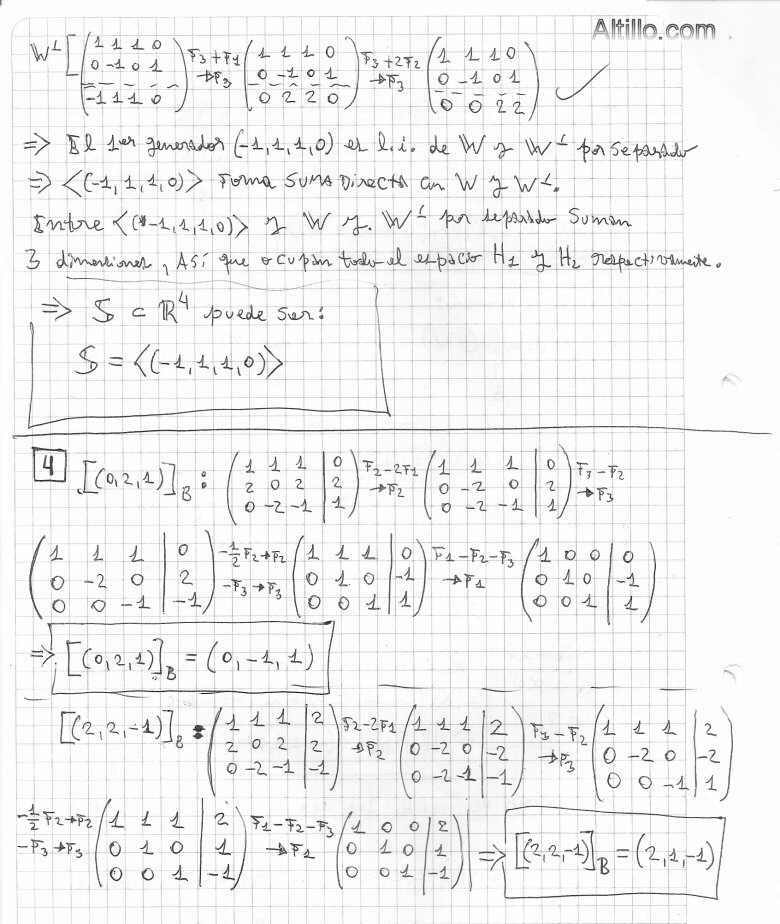 Altillo.com
W⊥ [ (1 1 1 0 / 0 -1 0 1 / -1 1 1 0) F3+F1 →F3 (1 1 1 0 / 0 -1 0 1 / 0 2 2 0) F3+2F2 →F3 (1 1 1 0 / 0 -1 0 1 / 0 0 2 2) ✓
=> El 1er generador (-1,1,1,0) es l.i. de W y W⊥ por separado
=> <(-1,1,1,0)> Forma SUMA DIRECTA con W y W⊥.
Entre <(-1,1,1,0)> y W y. W⊥ por separado suman
3 dimensiones, Así que ocupan todo el espacio H1 y H2 respectivamente.
=> S ⊂ R4 puede ser:
S = <(-1,1,1,0)>
4 [(0,2,1)]B : (1 1 1 | 0 / 2 0 2 | 2 / 0 -2 -1 | 1) F2-2F1 →F2 (1 1 1 | 0 / 0 -2 0 | 2 / 0 -2 -1 | 1) F3-F2 →F3
(1 1 1 | 0 / 0 -2 0 | 2 / 0 0 -1 | -1) -1/2 F2→F2 -F3→F3 (1 1 1 | 0 / 0 1 0 | -1 / 0 0 1 | 1) F1-F2-F3 →F1 (1 0 0 | 0 / 0 1 0 | -1 / 0 0 1 | 1)
=> [(0,2,1)]B = (0,-1,1)
[(2,2,-1)]B : (1 1 1 | 2 / 2 0 2 | 2 / 0 -2 -1 | -1) F2-2F1 →F2 (1 1 1 | 2 / 0 -2 0 | -2 / 0 -2 -1 | -1) F3-F2 →F3 (1 1 1 | 2 / 0 -2 0 | -2 / 0 0 -1 | 1)
-1/2 F2→F2 -F3→F3 (1 1 1 | 2 / 0 1 0 | 1 / 0 0 1 | -1) F1-F2-F3 →F1 (1 0 0 | 2 / 0 1 0 | 1 / 0 0 1 | -1) => [(2,2,-1)]B = (2,1,-1)